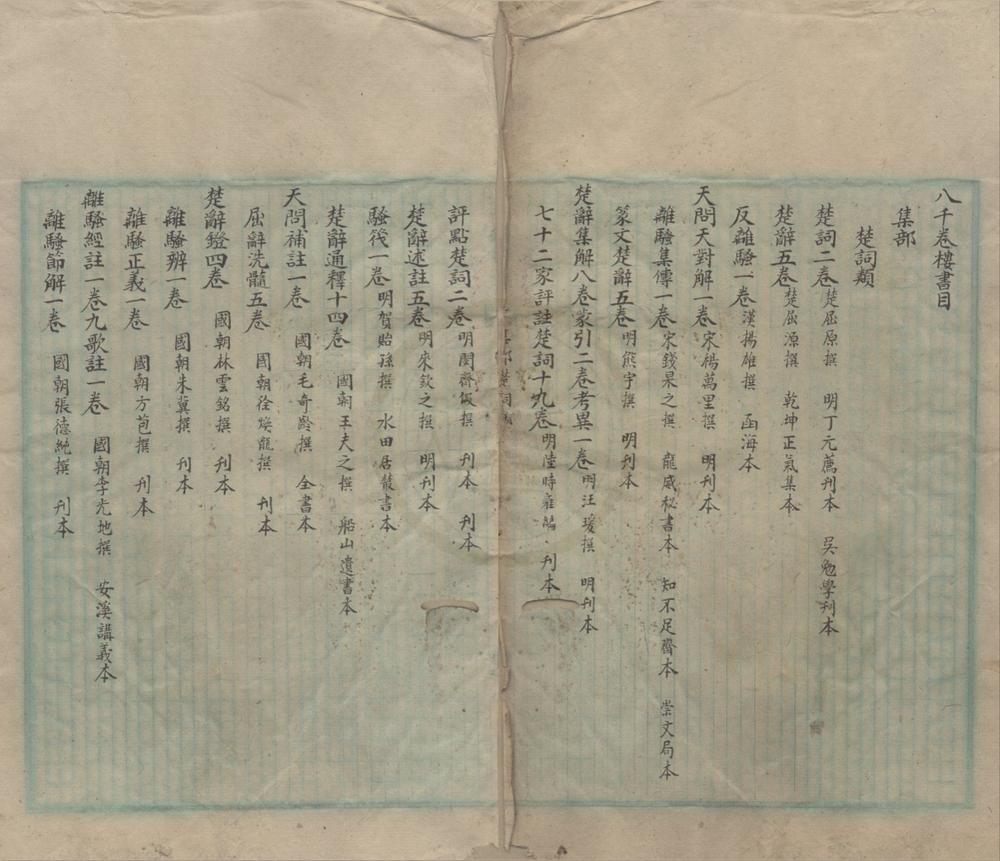 八千卷樓書目
集部
楚詞類
楚詞二卷 楚屈原撰 明丁元薦刊本 吳勉學刊本
楚辭五卷 楚屈源撰 乾坤正氣集本
反離騷一卷 漢揚雄撰 函海本
天問天對解一卷 宋楊萬里撰 明刊本
離騷集傳一卷 宋錢杲之撰 龍威秘書本 知不足齋本 崇文局本
篆文楚辭五卷 明熊宇撰 明刊本
楚辭集解八卷蒙引二卷考異一卷 明汪瑗撰 明刊本
七十二家評註楚詞十九卷 明陸時雍編 刊本
評點楚詞二卷 明閔齊伋撰 刊本 刊本
楚辭述註五卷 明來欽之撰 明刊本
騷筏一卷 明賀貽孫撰 水田居叢書本
楚辭通釋十四卷 國朝王夫之撰 船山遺書本
天問補註一卷 國朝毛奇齡撰 全書本
屈辭洗髓五卷 國朝徐煥龍撰 刊本
楚辭鐙四卷 國朝林雲銘撰 刊本
離騷辨一卷 國朝朱冀撰 刊本
離騷正義一卷 國朝方苞撰 刊本
離騷經註一卷九歌註一卷 國朝李光地撰 安溪講義本
離騷節解一卷 國朝張德純撰 刊本